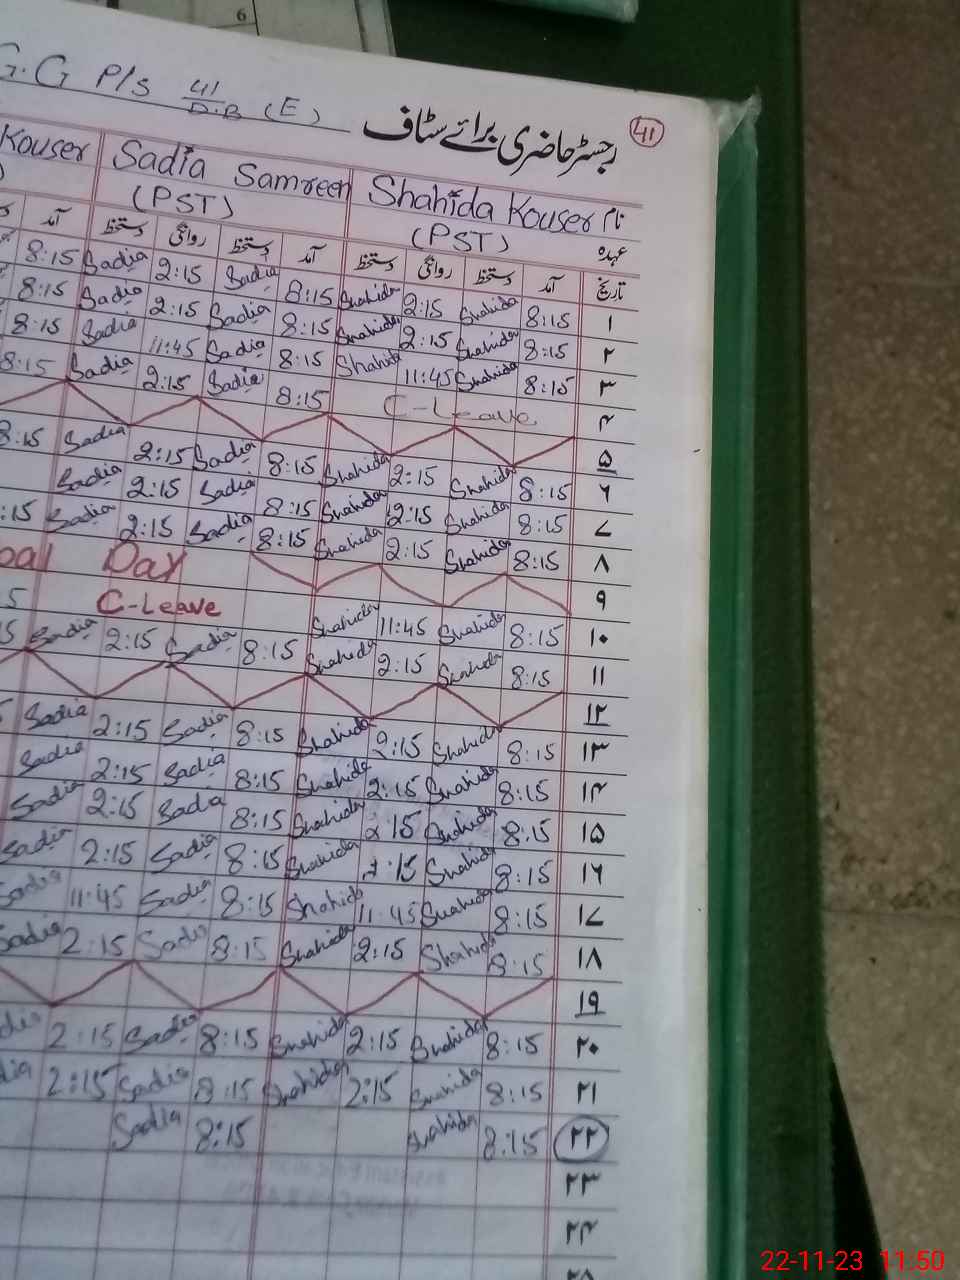 6
G.G P/s 41/D.B (E)
رجسٹر حاضری برائے سٹاف 41
Kouser Sadia Samreen Shahida Kouser نام
(PST) (PST) عہدہ
آمد دستخط روانگی دستخط آمد دستخط روانگی دستخط آمد تاریخ
8:15 Sadia 2:15 Sadia 8:15 Shahida 2:15 Shahida 8:15 ۱
8:15 Sadia 2:15 Sadia 8:15 Shahida 2:15 Shahida 8:15 ۲
8:15 Sadia 11:45 Sadia 8:15 Shahida 11:45 Shahida 8:15 ۳
8:15 Sadia 2:15 Sadia 8:15 C-Leave ۴
۵
8:15 Sadia 2:15 Sadia 8:15 Shahida 2:15 Shahida 8:15 ۶
Sadia 2:15 Sadia 8:15 Shahida 2:15 Shahida 8:15 ۷
:15 Sadia 2:15 Sadia 8:15 Shahida 2:15 Shahida 8:15 ۸
Day ۹
5 C-Leave Shahida 11:45 Shahida 8:15 ۱۰
15 Sadia 2:15 Sadia 8:15 Shahida 2:15 Shahida 8:15 ۱۱
۱۲
5 Sadia 2:15 Sadia 8:15 Shahida 2:15 Shahida 8:15 ۱۳
Sadia 2:15 Sadia 8:15 Shahida 2:15 Shahida 8:15 ۱۴
Sadia 2:15 Sadia 8:15 Shahida 2:15 Shahida 8:15 ۱۵
Sadia 2:15 Sadia 8:15 Shahida 2:15 Shahida 8:15 ۱۶
Sadia 11:45 Sadia 8:15 Shahida 11:45 Shahida 8:15 ۱۷
Sadia 2:15 Sadia 8:15 Shahida 2:15 Shahida 8:15 ۱۸
۱۹
dia 2:15 Sadia 8:15 Shahida 2:15 Shahida 8:15 ۲۰
dia 2:15 Sadia 8:15 Shahida 2:15 Shahida 8:15 ۲۱
Sadia 8:15 Shahida 8:15 ۲۲
۲۳
۲۴
۲۵
22-11-23 11:50